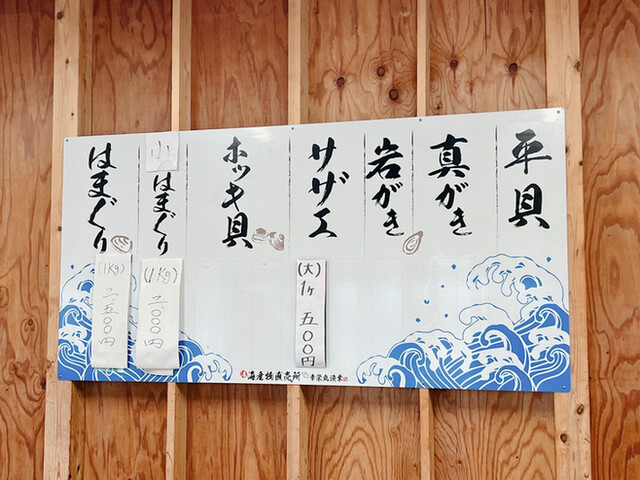 平貝
真がき
岩がき
サザエ
(大)1ヶ 五〇〇円
ホッキ貝
小
はまぐり
(1Kg) 二、〇〇〇円
はまぐり
(1Kg) 二、五〇〇円
海産物直売所
幸栄丸漁業